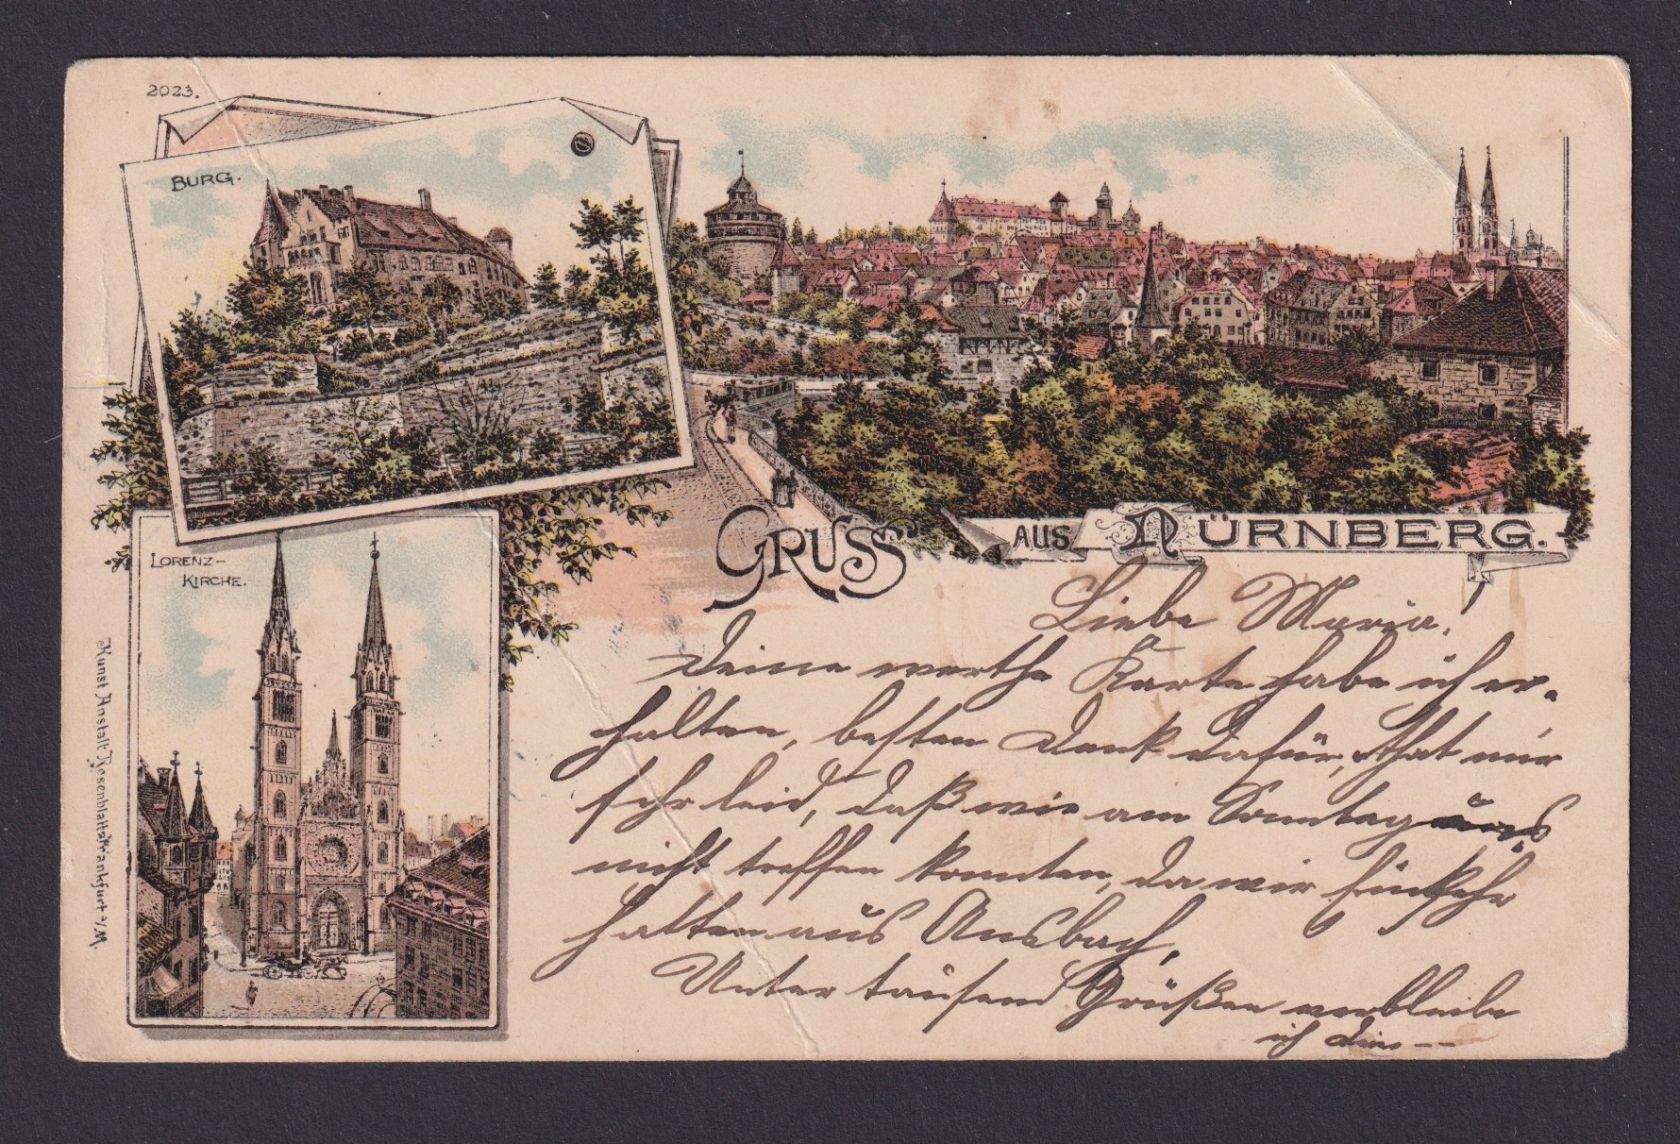 2023.
BURG.
GRUSS AUS NÜRNBERG.
LORENZ-
KIRCHE.
Kunst Anstalt Rosenblatt Frankfurt a/M.
Liebe Maria!
Deine werthe Karte habe ich er-
halten, besten Dank dafür, that mir
sehr leid, daß wir am Sonntag uns
nicht treffen konnten, da wir Einkehr
hatten aus Ansbach,
Unter tausend Grüßen verbleibe
ich Deine